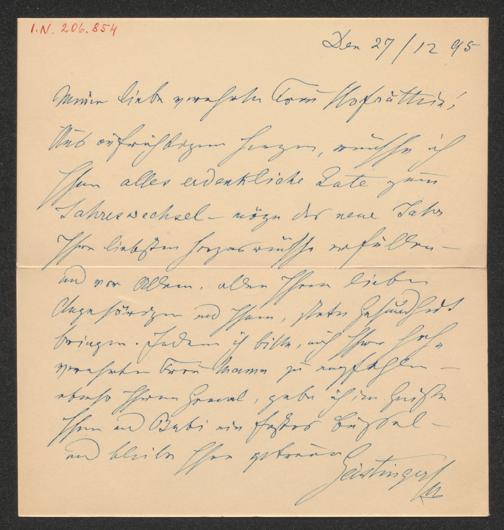 I.N. 206.854
Den 27/12 95
Meine liebe verehrte Frau Hofräthin!
Aus aufrichtigem Herzen, wünsche ich
Ihnen alles erdenkliche Gute zum
Jahreswechsel – möge das neue Jahr
Ihre liebsten Herzenswünsche erfüllen –
und vor Allem, allen Ihren lieben
Angehörigen und Ihnen, stete Gesundheit
bringen. Indem ich bitte, mich Ihrer hoch
verehrten Frau Mama zu empfehlen –
ebenso Ihrem Gemal, gebe ich im Geiste
Ihnen und Bubi ein festes Bussel –
und bleibe Ihre getreue
Geistinger